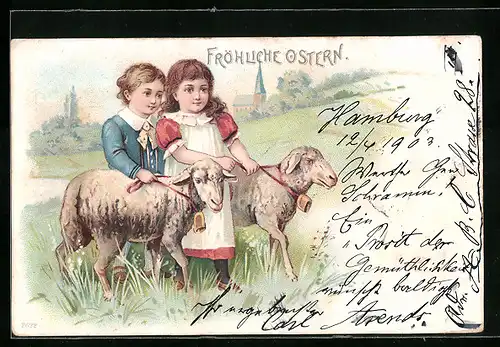 FRÖHLICHE OSTERN.
Hamburg
12/4 1903.
Werther Herr
Schramm!
Ein
"Prosit der
Gemüthlichkeit
wünscht baldigst
Ihr ergebenster
Carl Arends
Strasse 28